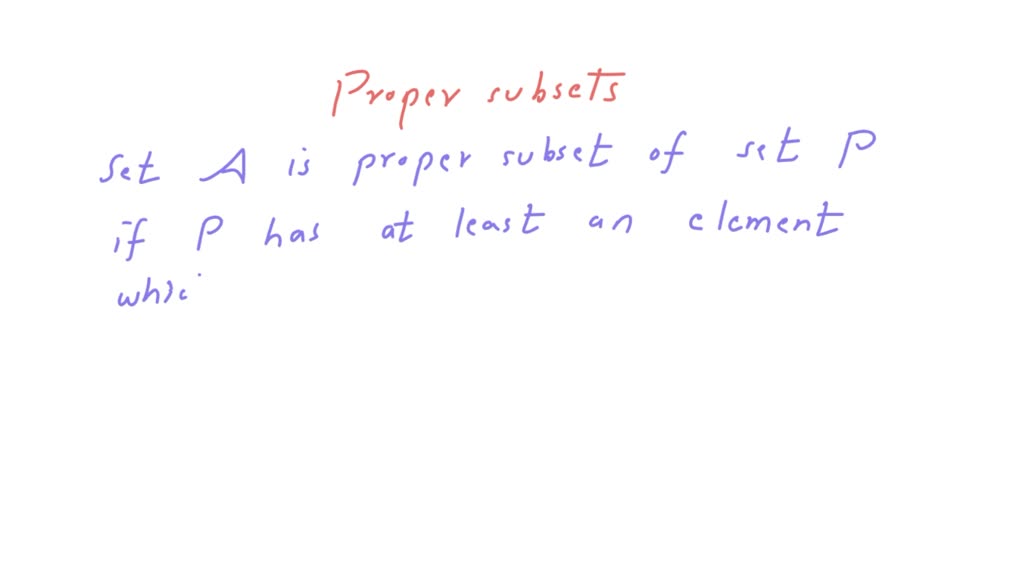 Proper subsets
Set A is proper subset of set P
if P has at least an element
whic